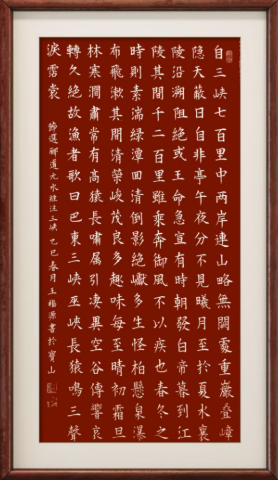 自三峽七百里中兩岸連山略無闕處重巖疊嶂
隱天蔽日自非亭午夜分不見曦月至於夏水襄
陵沿溯阻絕或王命急宣有時朝發白帝暮到江
陵其間千二百里雖乘奔御風不以疾也春冬之
時則素湍綠潭回清倒影絕巘多生怪柏懸泉瀑
布飛漱其間清榮峻茂良多趣味每至晴初霜旦
林寒澗肅常有高猿長嘯屬引凄異空谷傳響哀
轉久絕故漁者歌曰巴東三峽巫峽長猿鳴三聲
淚霑裳 節選酈道元水經注三峽 乙巳春月王福源書於寶山